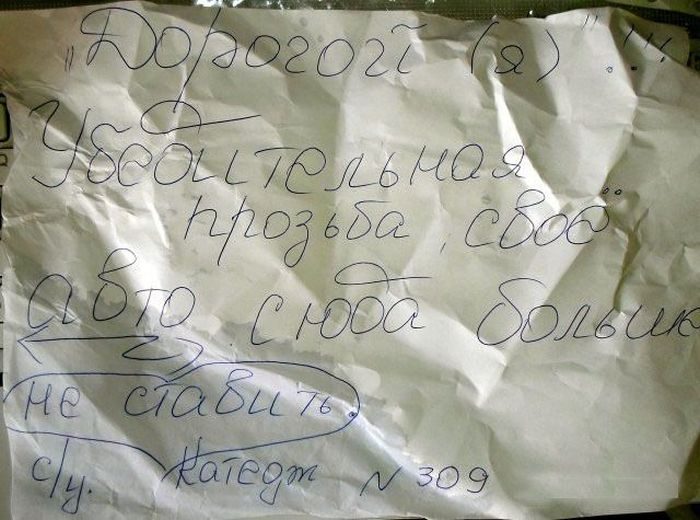 „Дорогой (я)"!!!
Убедительная
прозьба, своё
авто сюда больше
не ставить.
с/у. Катедж N 309